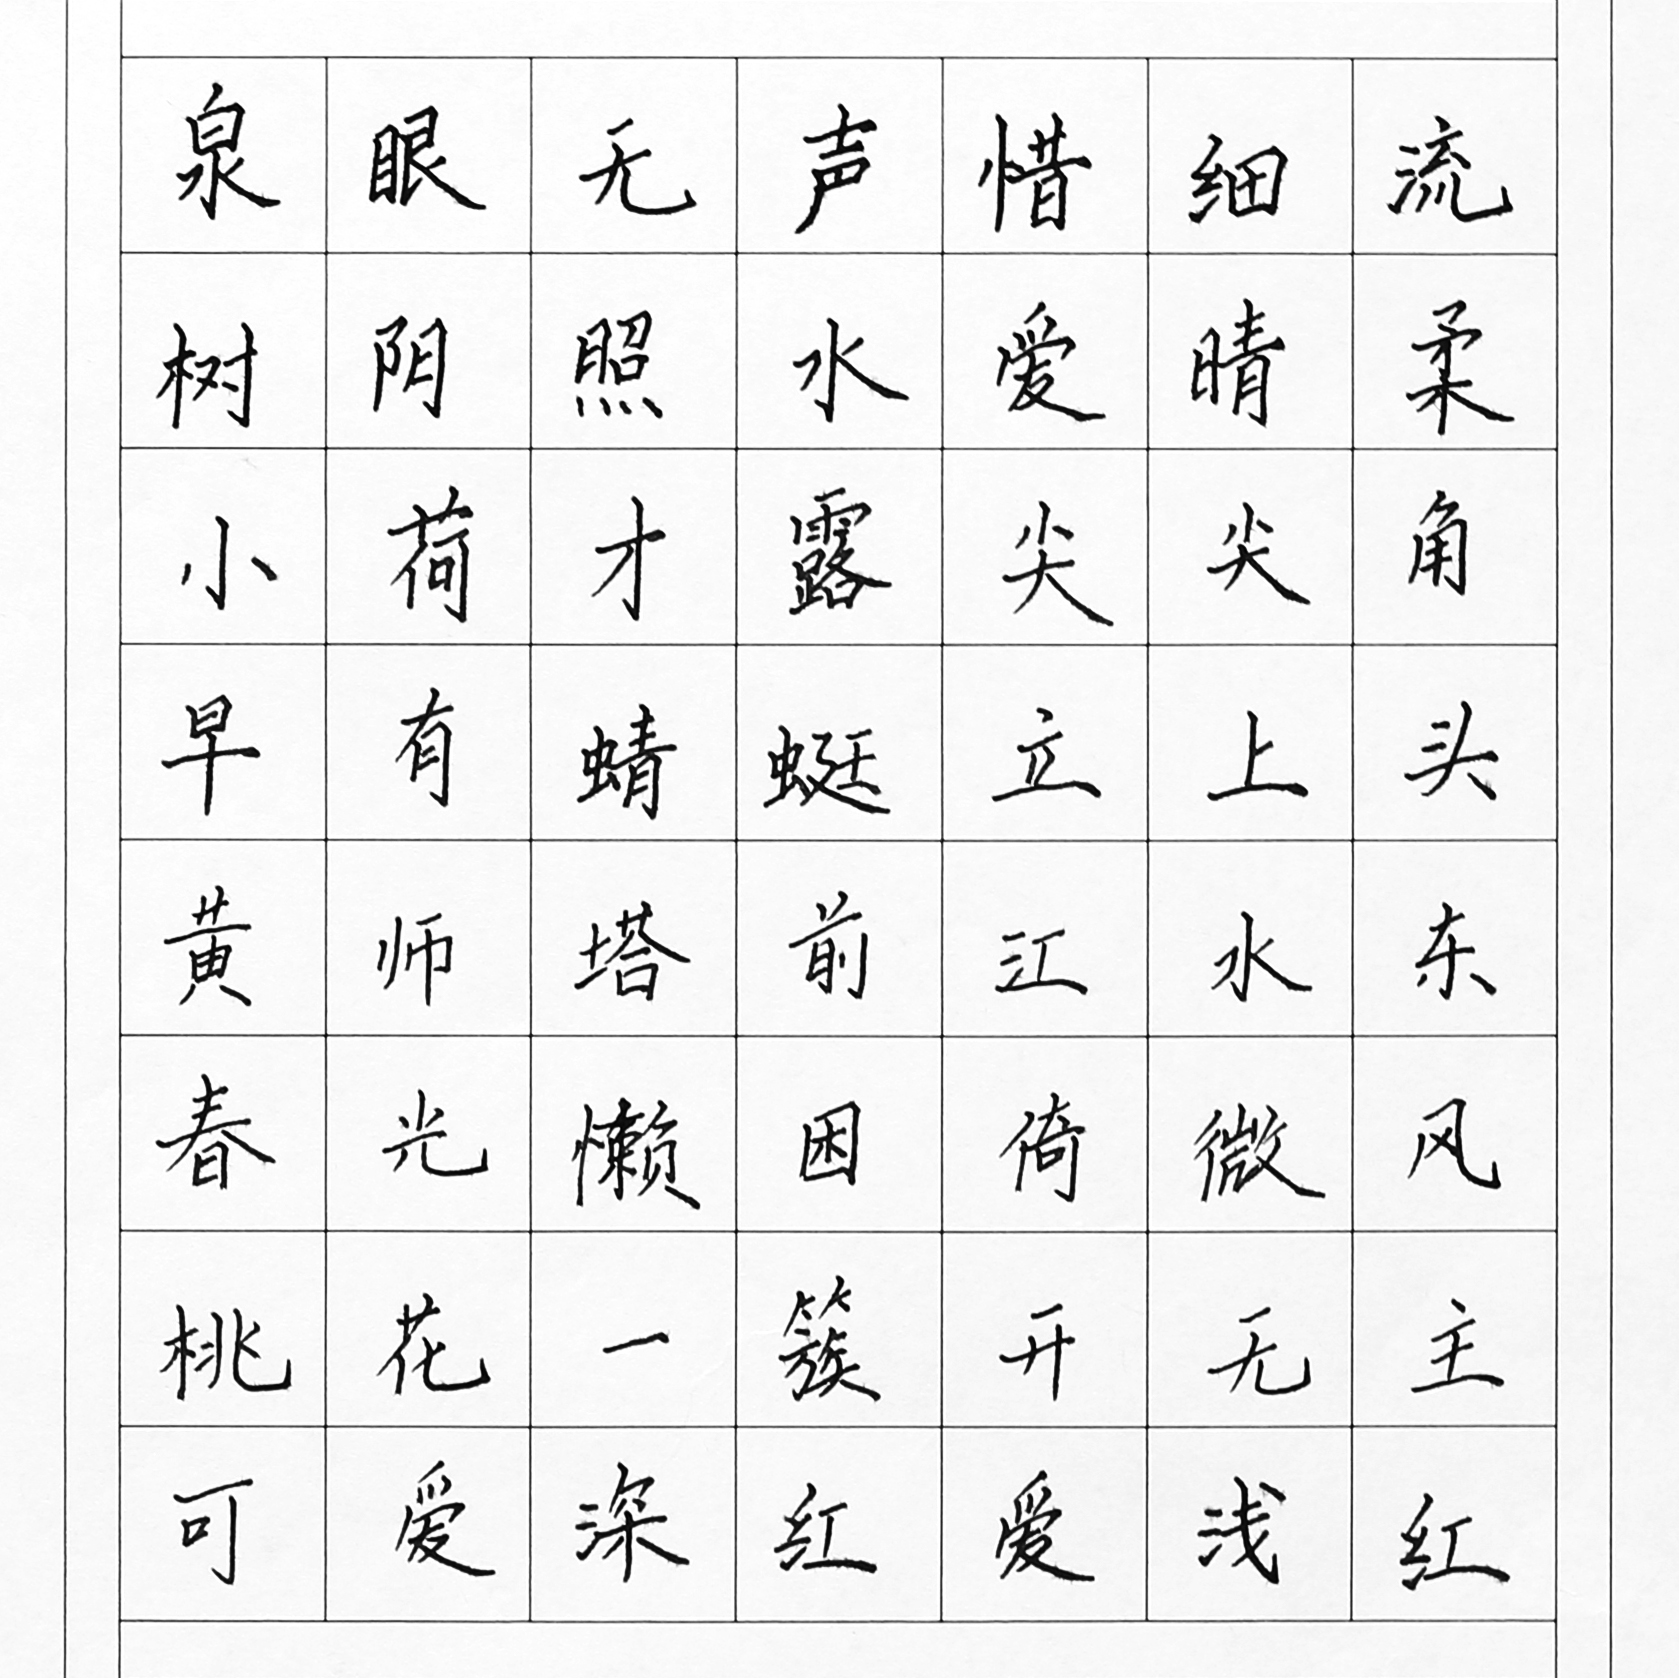 泉眼无声惜细流
树阴照水爱晴柔
小荷才露尖尖角
早有蜻蜓立上头
黄师塔前江水东
春光懒困倚微风
桃花一簇开无主
可爱深红爱浅红